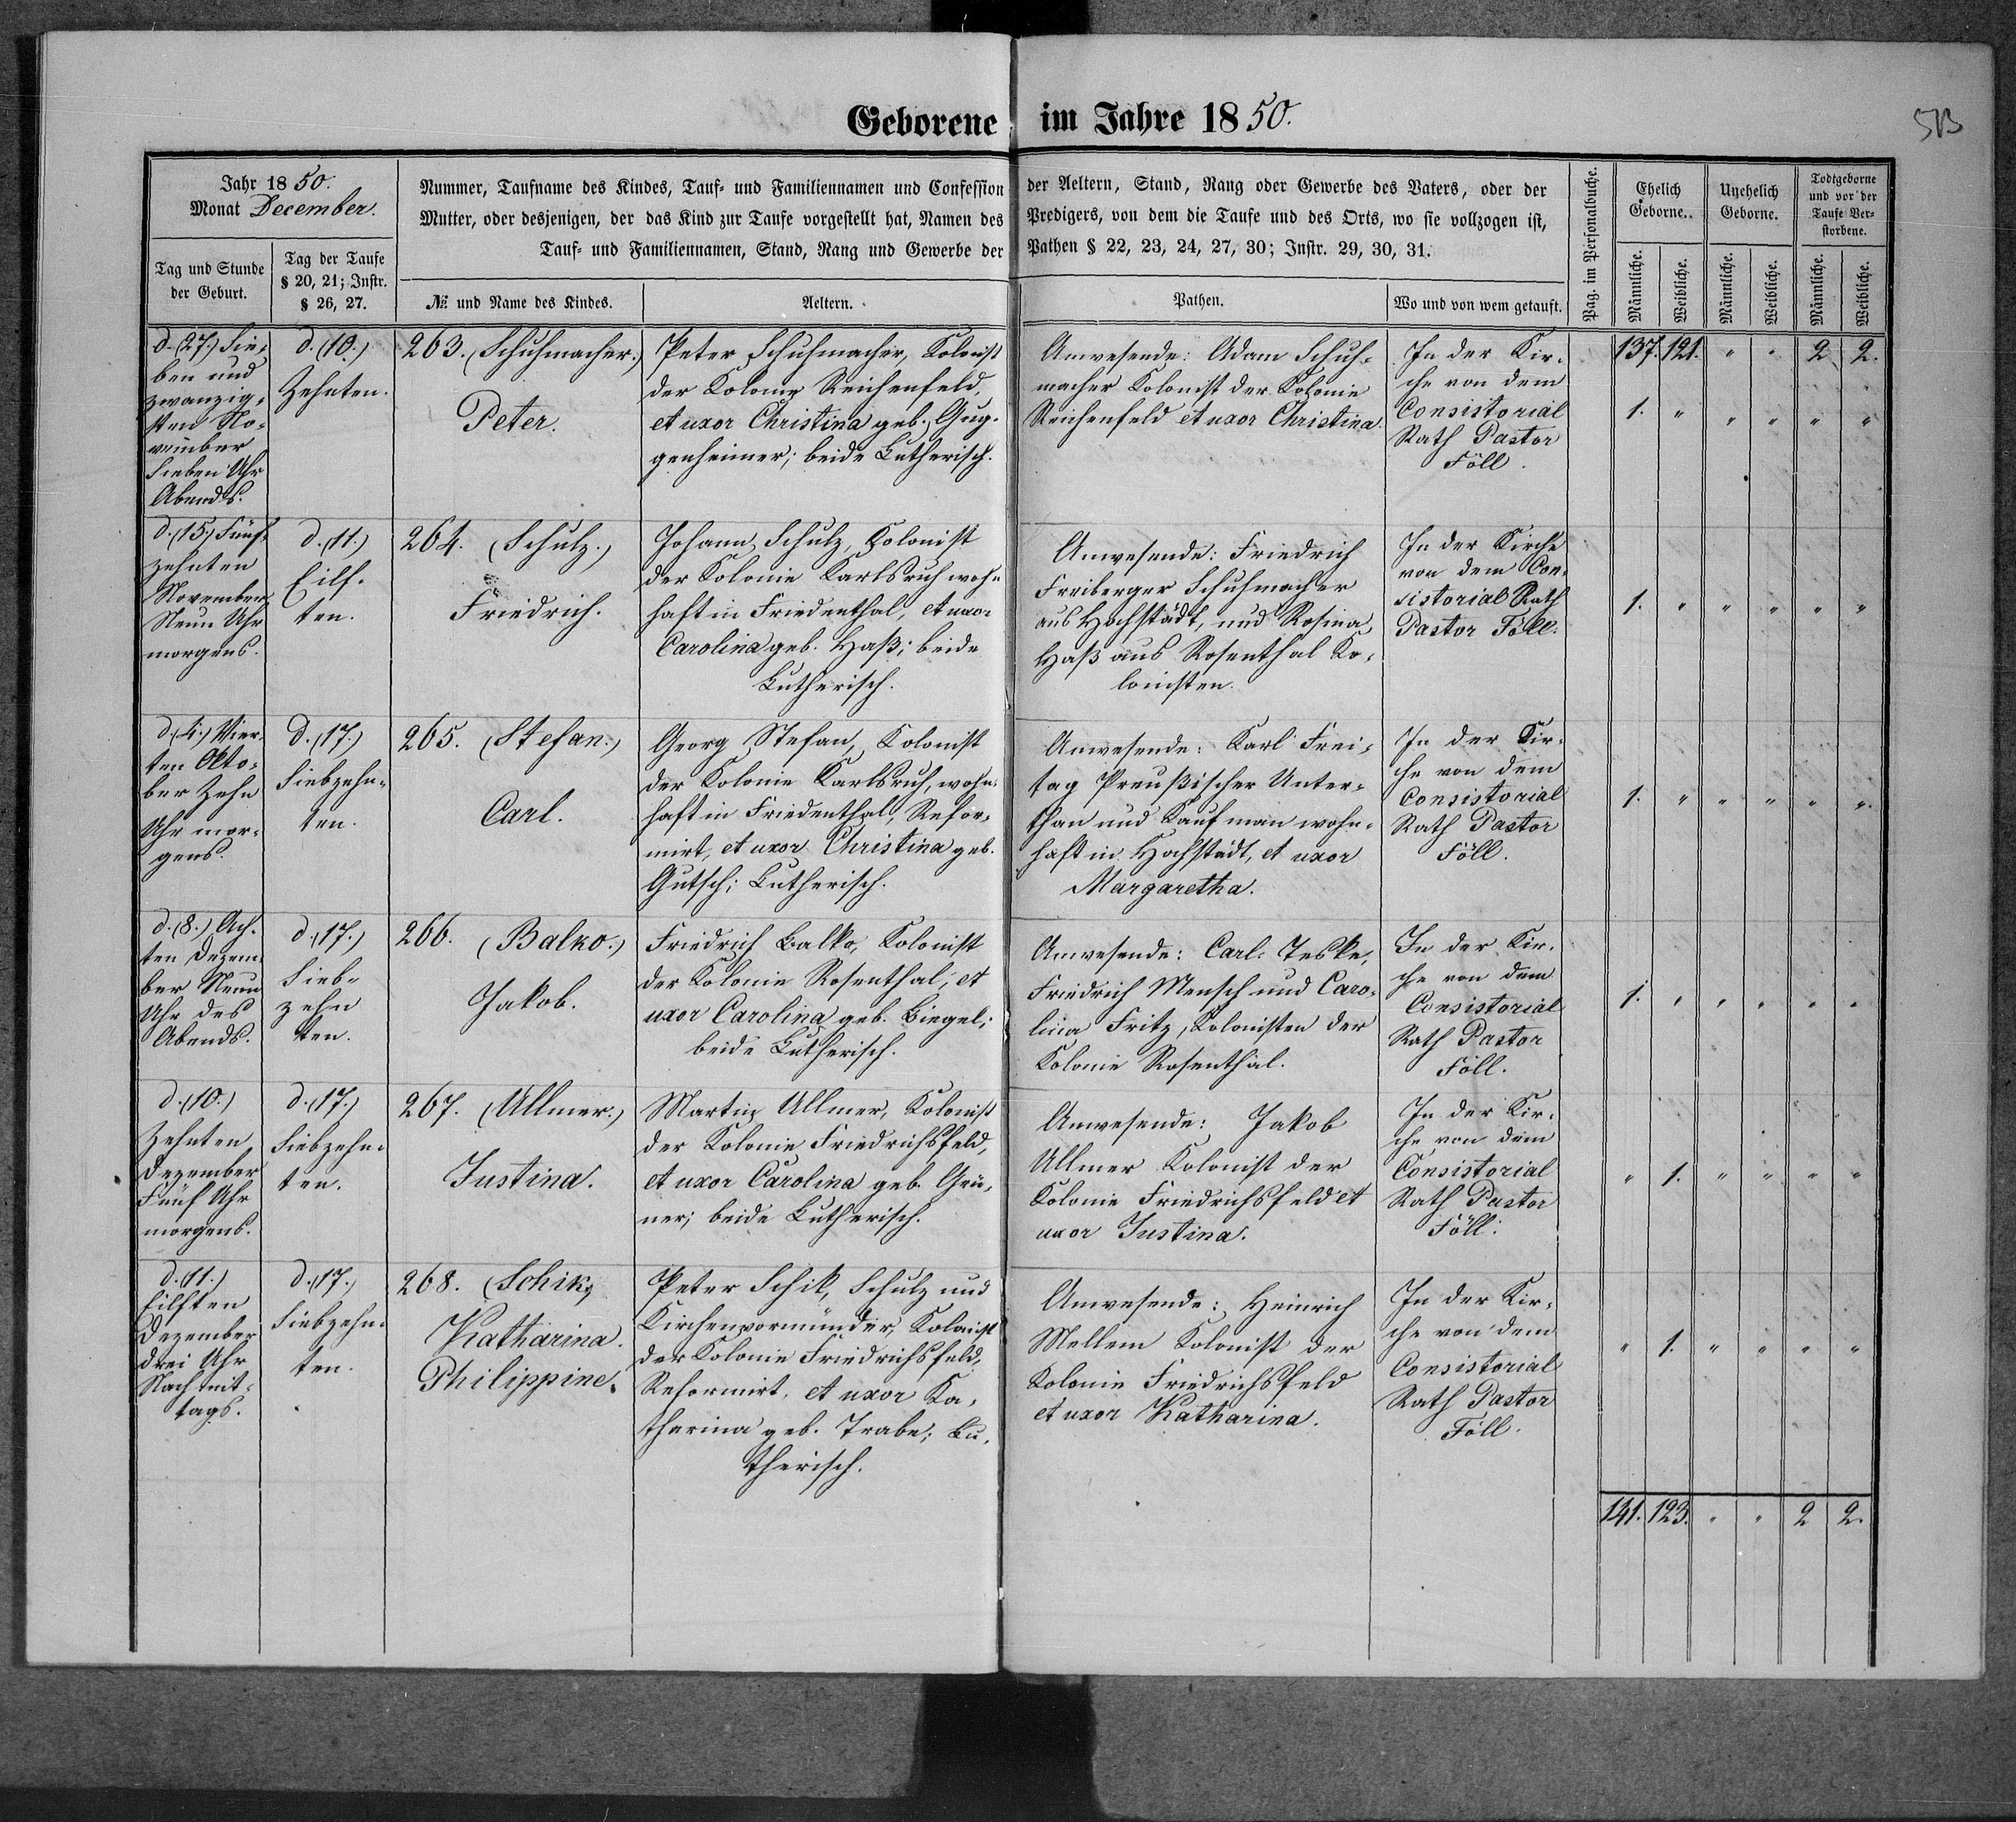 Geborene im Jahre 1850.
513
Jahr 1850.
Monat December.
Tag und Stunde
der Geburt.
Tag der Taufe
§ 20, 21; Instr.
§ 26, 27.
Nummer, Taufname des Kindes, Tauf- und Familiennamen und Confession der Aeltern, Stand, Rang oder Gewerbe des Vaters, oder der
Mutter, oder desjenigen, der das Kind zur Taufe vorgestellt hat, Namen des Predigers, von dem die Taufe und des Orts, wo sie vollzogen ist,
Tauf- und Familiennamen, Stand, Rang und Gewerbe der Pathen § 22, 23, 24, 27, 30; Instr. 29, 30, 31.
№ und Name des Kindes.
Aeltern.
Pathen.
Wo und von wem getauft.
Pag. im Personalbuche.
Ehelich
Geborne.
Unehelich
Geborne.
Todtgeborne
und vor der
Taufe Ver-
storbene.
Männliche.
Weibliche.
Männliche.
Weibliche.
Männliche.
Weibliche.
d. (27.) Sie-
ben und
zwanzig-
sten No-
vember
Sieben Uhr
Abends.
d. (10.)
Zehnten.
263. (Schuhmacher.)
Peter.
Peter Schuhmacher, Kolonist
der Kolonie Reichenfeld,
et uxor Christina geb. Gug-
genheimer; beide Lutherisch.
Anwesende: Adam Schuh-
macher Kolonist der Kolonie
Reichenfeld et uxor Christina.
In der Kir-
che von dem
Consistorial
Rath Pastor
Föll.
137. 121. " " 2 2.
1. " " " " "
d. (15.) Fünf-
zehnten
November
Neun Uhr
morgens.
d. (11.)
Eilf-
ten.
264. (Schulz.)
Friedrich.
Johann Schulz, Kolonist
der Kolonie Karlsruh wohn-
haft in Friedenthal, et uxor
Carolina geb. Haß; beide
Lutherisch.
Anwesende: Friedrich
Freiberger Schuhmacher
aus Hochstädt, und Rosina
Haß aus Rosenthal Ko-
lonisten.
In der Kirche
von dem Con-
sistorial Rath
Pastor Föll.
1. " " " " "
d. (4.) Vier-
ten Okto-
ber Zehn
Uhr mor-
gens.
d. (17.)
Siebzehn-
ten.
265. (Stefan.)
Carl.
Georg Stefan, Kolonist
der Kolonie Karlsruh, wohn-
haft in Friedenthal, Refor-
mirt, et uxor Christina geb.
Gutsch; Lutherisch.
Anwesende: Karl Frei-
tag Preußischer Unter-
than und Kaufman wohn-
haft in Hochstädt, et uxor
Margaretha.
In der Kir-
che von dem
Consistorial
Rath Pastor
Föll.
1. " " " " "
d. (8.) Ach-
ten Dezem-
ber Neun
Uhr des
Abends.
d. (17.)
Sieb-
zehn
ten.
266. (Balko.)
Jakob.
Friedrich Balko, Kolonist
der Kolonie Rosenthal, et
uxor Carolina geb. Biegel;
beide Lutherisch.
Anwesende: Carl Teske,
Friedrich Mensch und Caro-
lina Fritz, Kolonisten der
Kolonie Rosenthal.
In der Kir-
che von dem
Consistorial
Rath Pastor
Föll.
1. " " " " "
d. (10.)
Zehnten
Dezember
Fünf Uhr
morgens.
d. (17.)
Siebzehn-
ten.
267. (Ullmer.)
Justina.
Martin Ullmer, Kolonist
der Kolonie Friedrichsfeld,
et uxor Carolina geb. Grie-
ner; beide Lutherisch.
Anwesende: Jakob
Ullmer Kolonist der
Kolonie Friedrichsfeld et
uxor Justina.
In der Kir-
che von dem
Consistorial
Rath Pastor
Föll.
" 1. " " " "
d. (11.)
Eilften
Dezember
Drei Uhr
Nachmit-
tags.
d. (17.)
Siebzehn-
ten.
268. (Schik)
Katharina.
Philippine.
Peter Schik, Schulz und
Kirchenvormünder, Kolonist
der Kolonie Friedrichsfeld,
Reformirt, et uxor Ka-
tharina geb. Trabe; Lu-
therisch.
Anwesende: Heinrich
Mellem Kolonist der
Kolonie Friedrichsfeld
et uxor Katharina.
In der Kir-
che von dem
Consistorial
Rath Pastor
Föll.
" 1. " " " "
141. 123. " " 2 2.